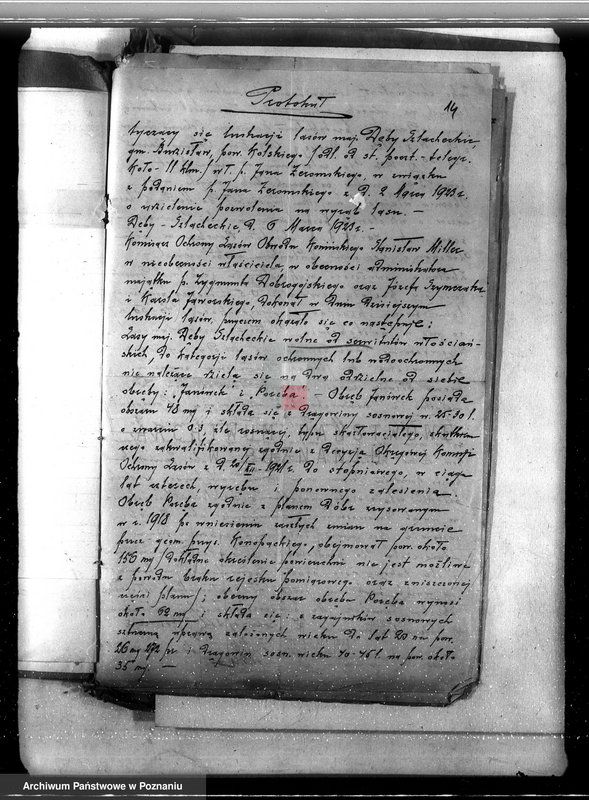 Protokuł
14
tyczący się lustracji lasów maj. Dęby Szlacheckie
gm. Budzisław, pow. Kolskiego /odl. od st. poczt.-telegr.
Koło - 11 klm./ wł. p. Jana Żeromskiego, w związku
z podaniem p. Jana Żeromskiego z d. 2 Marca 1923 r.
o udzielenie pozwolenia na wyrąb lasu. -
Dęby - Szlacheckie, d. 6 Marca 1923 r. -
Komisarz Ochrony Lasów Obwodu Konińskiego Stanisław Miller
w nieobecności właściciela, w obecności administratora
majątku p. Zygmunta Dobrogojskiego oraz Józefa Szymczaka
i Karola Jaworskiego, dokonał w dniu dzisiejszym
lustracji lasów, przyczem okazało się co następuje:
Lasy maj. Dęby Szlacheckie wolne od serwitutów włościań-
skich, do kategorji lasów ochronnych lub wodoochronnych
nie należące dzielą się na dwa oddzielne od siebie
obręby: "Janówek" i "Poręba". - Obręb Janówek posiada
obszaru 48 mg i składa się z drągowiny sosnowej w. 25-30 l.
o zwarciu 0.3, źle rosnącej, typu skarłowaciałego,
zakwalifikowany zgodnie z decyzją Okręgowej Komisji
Ochrony Lasów z d. do stopniowego, w ciągu
lat czterech, wyrębu i ponownego zalesienia.
Obręb Poręba zgodnie z planem Dóbr rysowanym
w r. 1918 po wniesieniu zaszłych zmian na gruncie
przez geom. przys. Konopackiego, obejmował pow. około
156 mg /Dokładne określenie powierzchni nie jest możliwe
z powodu braku rejestru pomiarowego oraz zniszczonej
części planu/; obecny obszar obrębu Poręba wynosi
około 62 mg i składa się: z zagajników sosnowych
sztuczną uprawą założonych wieku do lat 20 na pow.
26 mg 292 pr. i drągowin sosn. wieku 40-45 l. na pow. około
35 mg. -
Archiwum Państwowe w Poznaniu